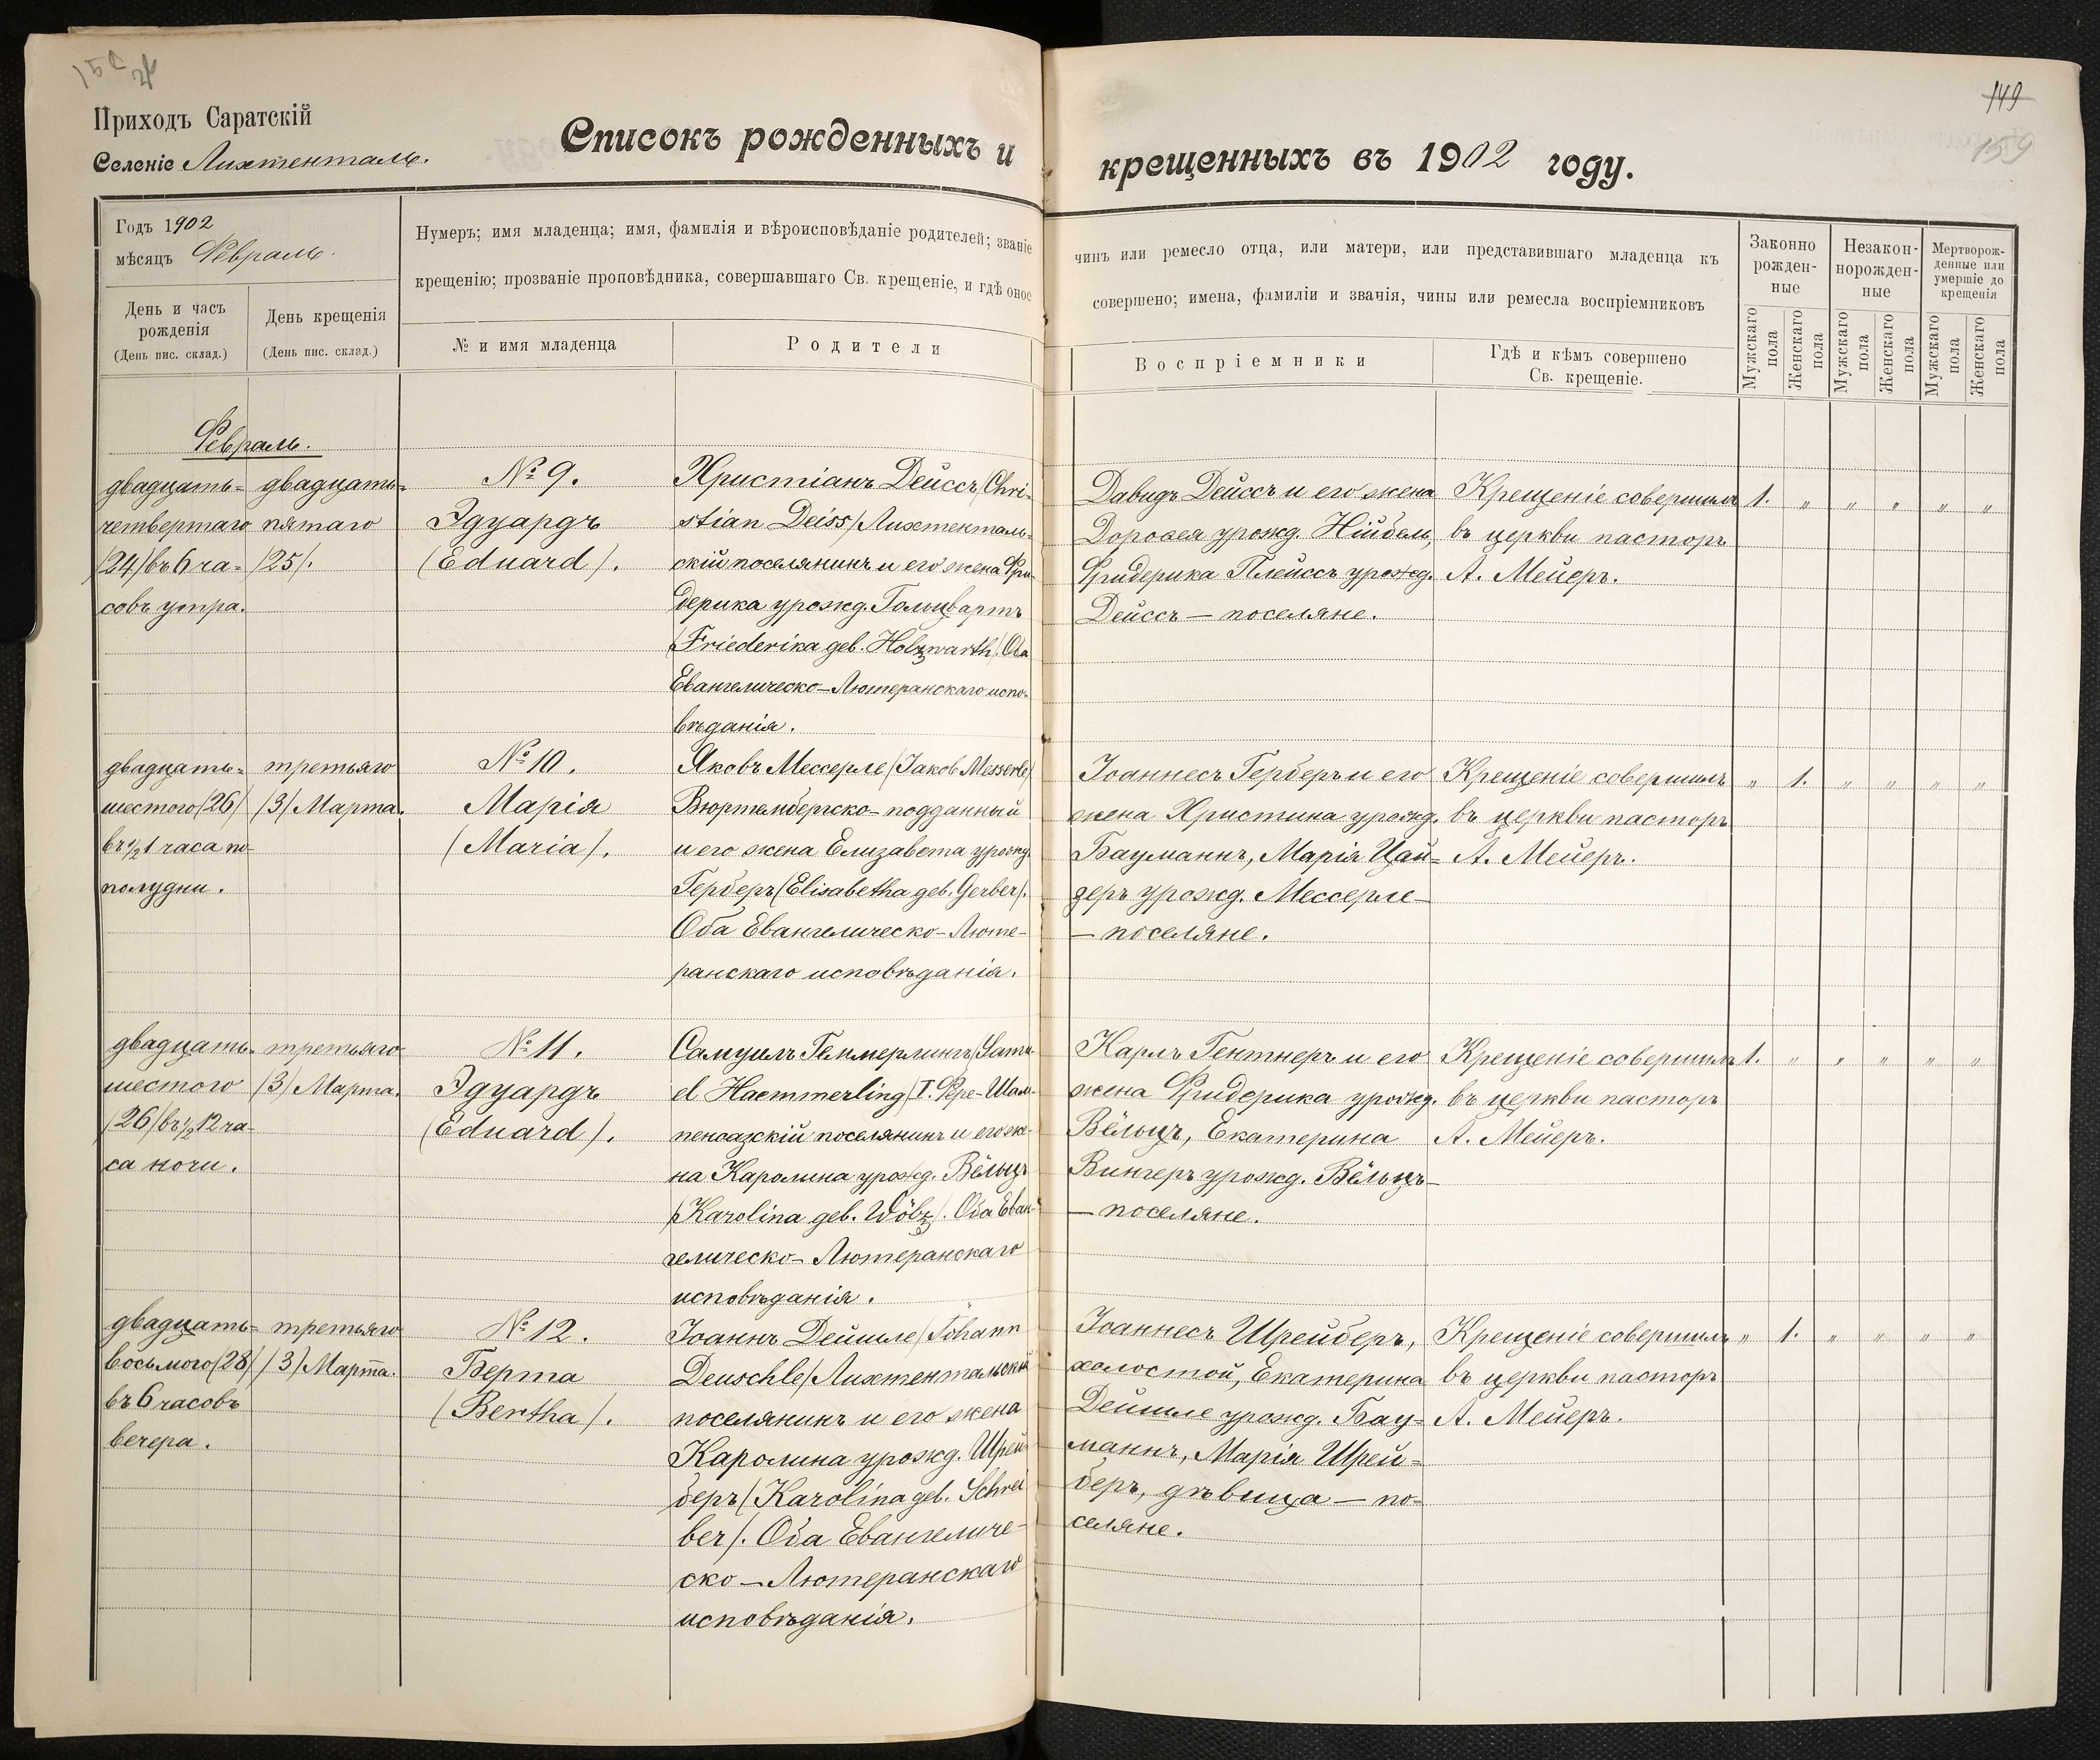 Приходъ Саратскій
Селеніе Лихтенталь.
Списокъ рожденныхъ и крещенныхъ въ 1902 году.
149
159
Годъ 1902
мѣсяцъ Февраль.
Нумеръ; имя младенца; имя, фамилія и вѣроисповѣданіе родителей; званіе
чинъ или ремесло отца, или матери, или представившаго младенца къ
крещенію; прозваніе проповѣдника, совершавшаго Св. крещеніе, и гдѣ оное
совершено; имена, фамиліи и званія, чины или ремесла воспріемниковъ
День и часъ
рожденія
(День пис. склад.)
День крещенія
(День пис. склад.)
№ и имя младенца
Родители
Воспріемники
Гдѣ и кѣмъ совершено
Св. крещеніе.
Законно
рожден-
ные
Незакон-
норожден-
ные
Мертворож-
денные или
умершіе до
крещенія
Мужскаго
пола
Женскаго
пола
Мужскаго
пола
Женскаго
пола
Мужскаго
пола
Женскаго
пола
Февраль.
двадцать=
четвертаго
/24/ въ 6 ча=
совъ утра.
двадцать=
пятаго
/25/.
№ 9.
Эдуардъ
(Eduard).
Христіанъ Дейссъ /Chri-
stian Deiss/ Лихтенталь-
скій поселянинъ и его жена Фри-
дерика урожд. Гольцвартъ
/Friederika geb. Holzwarth/. Оба
Евангелическо-Лютеранскаго испо-
вѣданія.
Давидъ Дейссъ и его жена
Доровея урожд. Нійбель,
Фридерика Плейссъ урожд.
Дейссъ — поселяне.
Крещеніе совершилъ
въ церкви пасторъ
А. Мейеръ.
1. " " " " "
двадцать=
шестого /26/
въ ½ 1 часа по-
полудни.
третьяго
/3/ Марта.
№ 10.
Марія
(Maria).
Яковъ Мессерле /Jakob Messerle/
Вюртембергско-подданный
и его жена Елизавета урожд.
Герберъ /Elisabetha geb. Gerber/.
Оба Евангелическо-Люте-
ранскаго исповѣданія.
Іоаннесъ Герберъ и его
жена Христина урожд.
Бауманнъ, Марія Цай=
зеръ урожд. Мессерле —
— поселяне.
Крещеніе совершилъ
въ церкви пасторъ
А. Мейеръ.
" 1. " " " "
двадцать-
шестого
/26/ въ ½ 12 ча-
са ночи.
третьяго
/3/ Марта.
№ 11.
Эдуардъ
(Eduard).
Самуилъ Геммерлингъ /Samu-
el Haemmerling/ I. Фере-Шам-
пенсазскій поселянинъ и его же-
на Каролина урожд. Вёльцъ
/Karolina geb. Wölz/. Оба Еван-
гелическо-Лютеранскаго
исповѣданія.
Карлъ Гентнеръ и его
жена Фридерика урожд.
Вёльцъ, Екатерина
Вингеръ урожд. Вёльцъ —
— поселяне.
Крещеніе совершилъ
въ церкви пасторъ
А. Мейеръ.
1. " " " " "
двадцать=
восьмого /28/
въ 6 часовъ
вечера.
третьяго
/3/ Марта.
№ 12.
Берта
(Bertha).
Іоаннъ Дейшле /Johann
Deuschle/ Лихтентальскій
поселянинъ и его жена
Каролина урожд. Шрей-
беръ /Karolina geb. Schrei
ber/. Оба Евангеличе-
ско-Лютеранскаго
исповѣданія.
Іоаннесъ Шрейберъ,
холостой, Екатерина
Дейшле урожд. Бау=
маннъ, Марія Шрей=
беръ, дѣвица — по=
селяне.
Крещеніе совершилъ
въ церкви пасторъ
А. Мейеръ.
" 1. " " " "